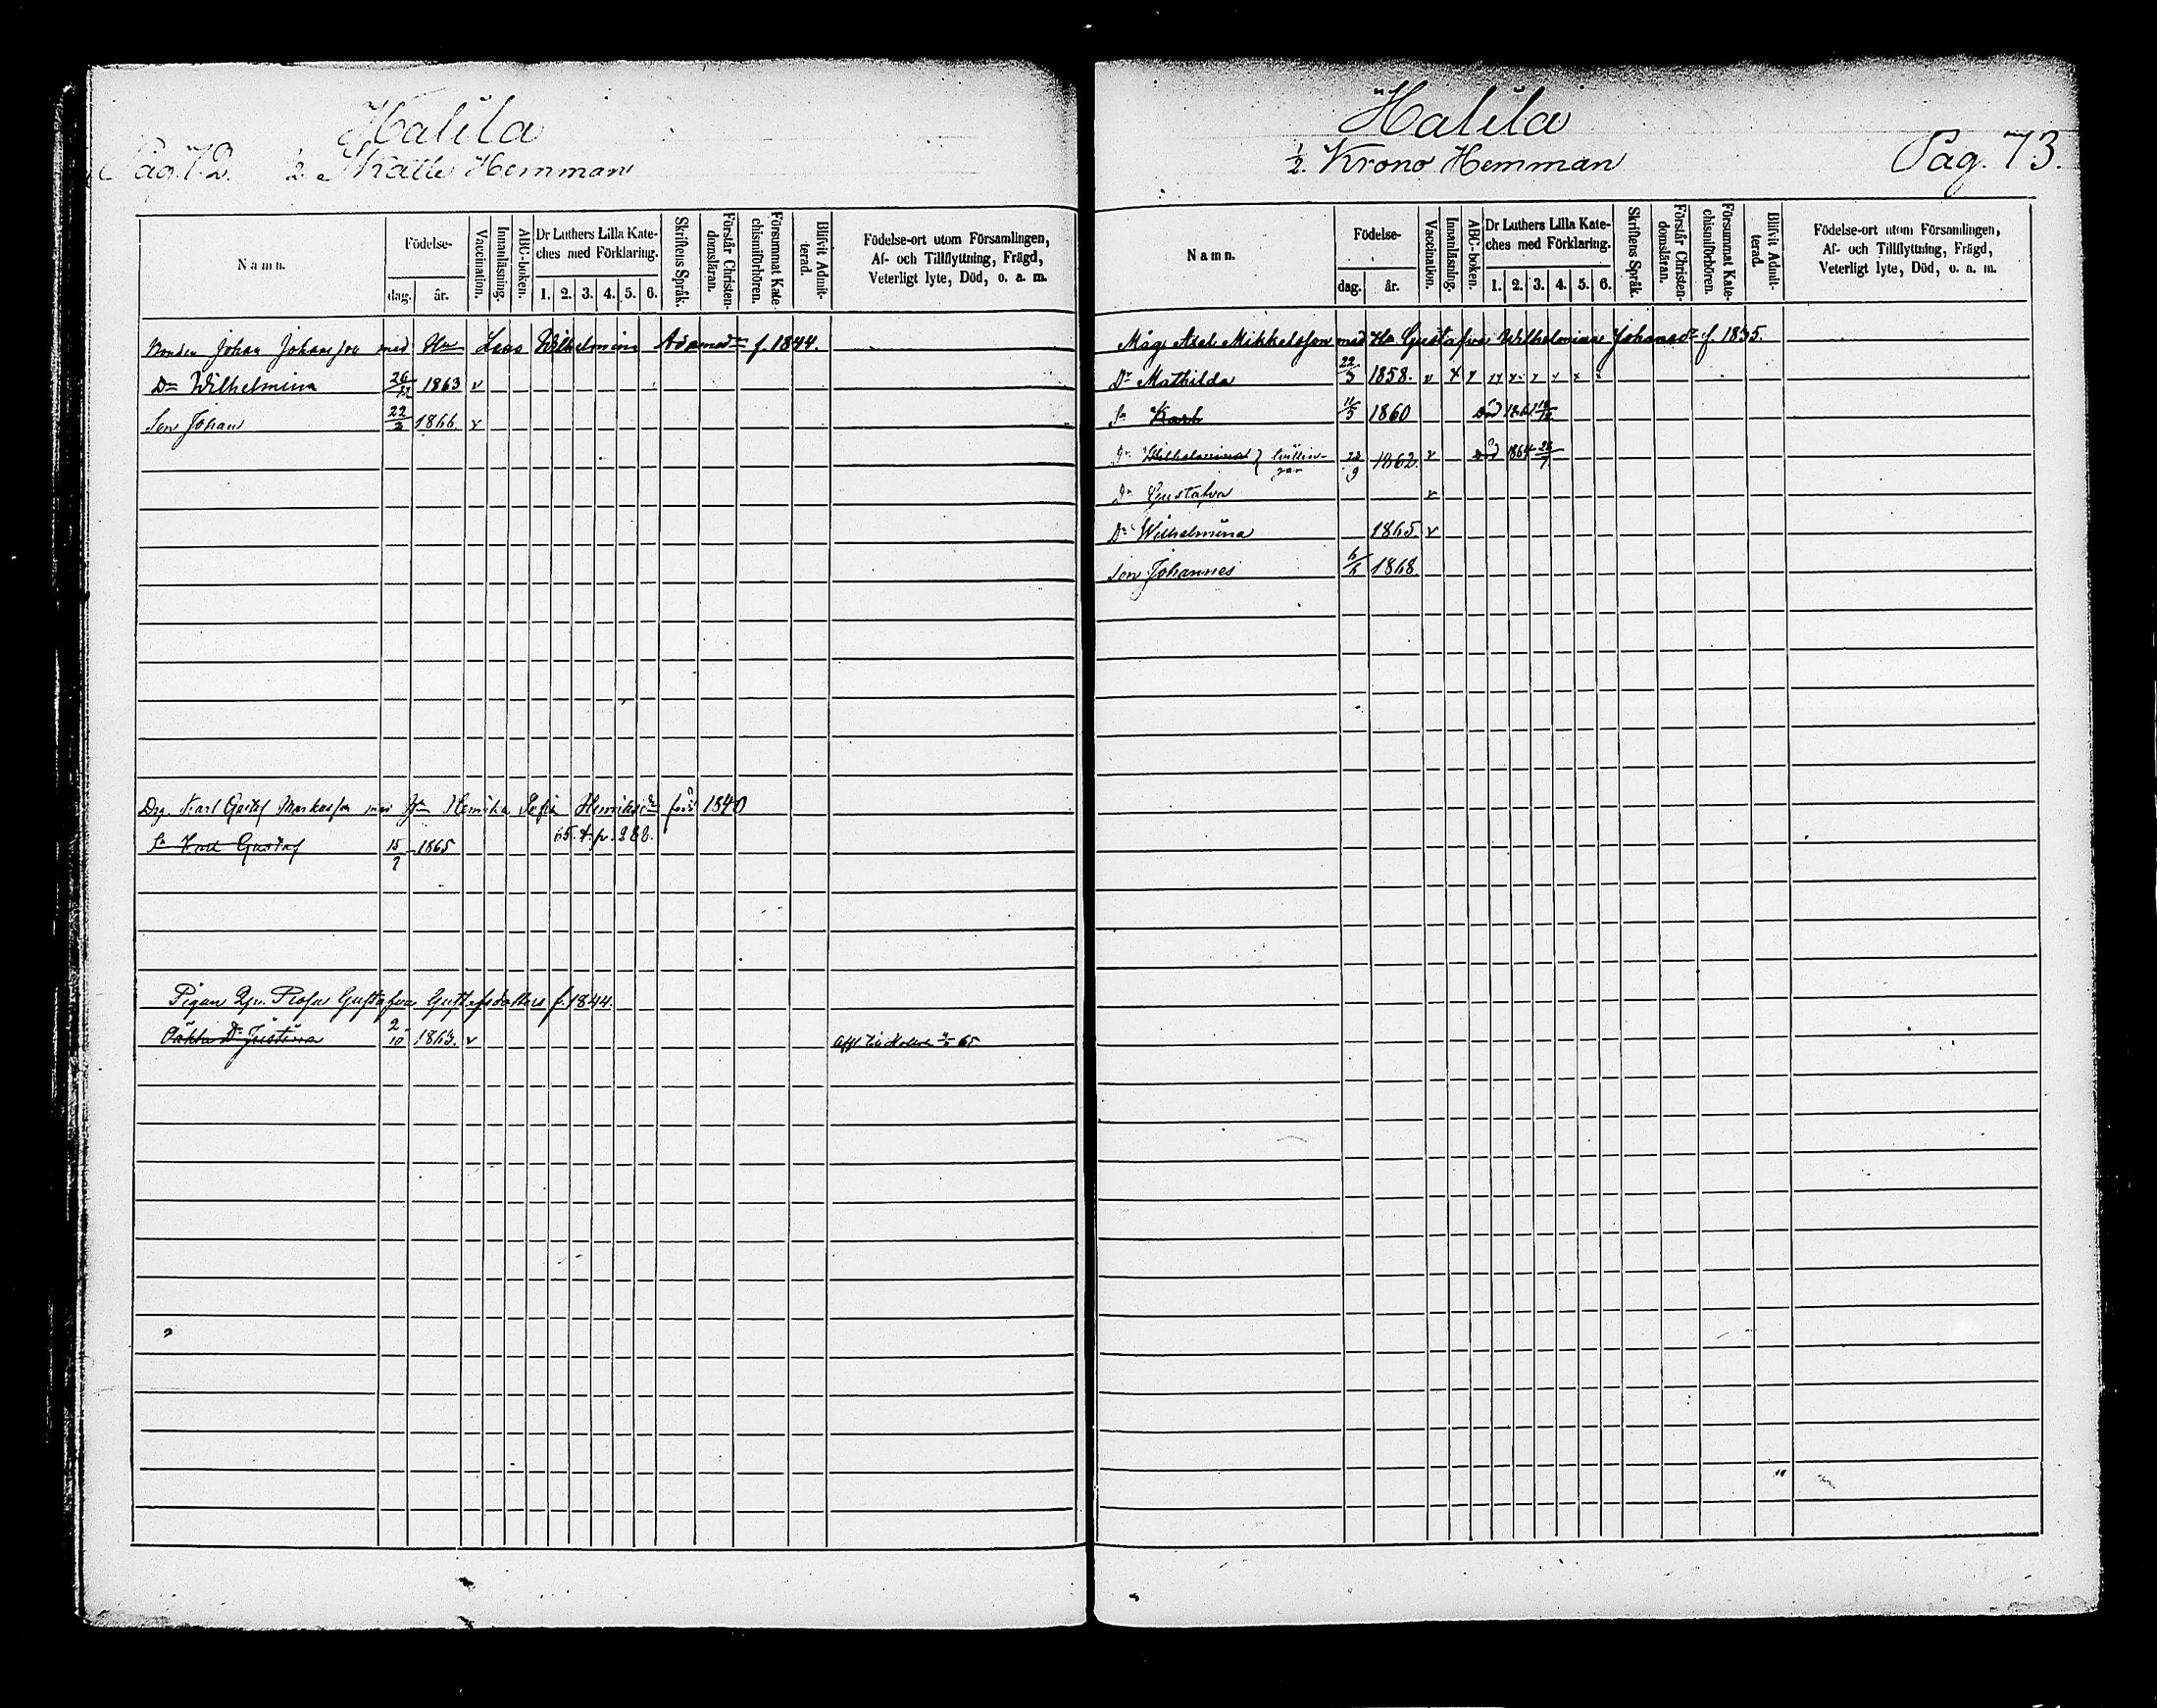 Halila
Pag. 72. ½ Skatte Hemman
Namn.
Födelse-
dag. år.
Vaccination.
Innanläsning.
ABC-boken.
Dr Luthers Lilla Kate-
ches med Förklaring.
1. 2. 3. 4. 5. 6.
Skriftens Språk.
Förstår Christen-
domsläran.
Försummat Kate
chismiförhören.
Blifvit Admit-
terad.
Födelse-ort utom Församlingen,
Af- och Tillflyttning, Frägd,
Veterligt lyte, Död, o. a. m.
Bonden Johan Johansson med Hu Lisa Wilhelmina Adamsdr f. 1844.
Dr Wilhelmina 26/12 1863 v
Son Johan 22/2 1866 v
Drg. Karl Gustaf Markusson med Hu Henrika Sofia Henriksdr född 1840
Sn Karl Gustaf 15/7 1865 65. t. p. 288.
Pigan Qv. Rosa Gustafva Gustafsdotters f. 1844.
Oäkta Dr Justina 2/10 1863. v 65
Halila
½. Krono Hemman Pag. 73.
Namn.
Födelse-
dag. år.
Vaccination.
Innanläsning.
ABC-boken.
Dr Luthers Lilla Kate-
ches med Förklaring.
1. 2. 3. 4. 5. 6.
Skriftens Språk.
Förstår Christen-
domsläran.
Försummat Kate-
chismiförhören.
Blifvit Admit-
terad.
Födelse-ort utom Församlingen,
Af- och Tillflyttning, Frägd,
Veterligt lyte, Död, o. a. m.
Måg Axel Mikkelsson med Hu Gustafva Wilhelmina Johansdr f. 1835.
Dr Mathilda 22/3 1858. v x x x x x x x x
Sn Karl 11/5 1860 död
Dr Wilhelmina } tvillin-
gar 22/9 1862. v död 1864 28/7
Dr Gustafva v
Dr Wilhelmina 1865. v
Son Johannes 6/6 1868